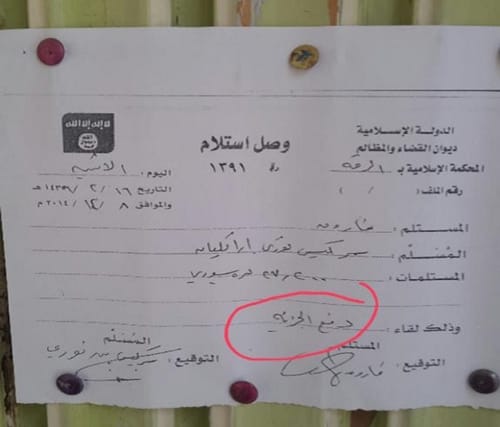 الدولة الإسلامية
ديوان القضاء والمظالم
المحكمة الإسلامية بـ الرقة
رقم الملف: / /
وصل استلام
رقم ١٣٩١
لا إله إلا الله
الله رسول محمد
اليوم: الاثنين
التاريخ ١٦ / ٢ / ١٤٣٦ هـ
والموافق ٨ / ١٢ / ٢٠١٤ م
المستلم: فاروق
المُسَلِّم: سركيس
المستلمات: سوري
وذلك لقاء: دفع الجزية
المستلم
التوقيع: فاروق
المُسَلِّم
التوقيع: سركيس نوري